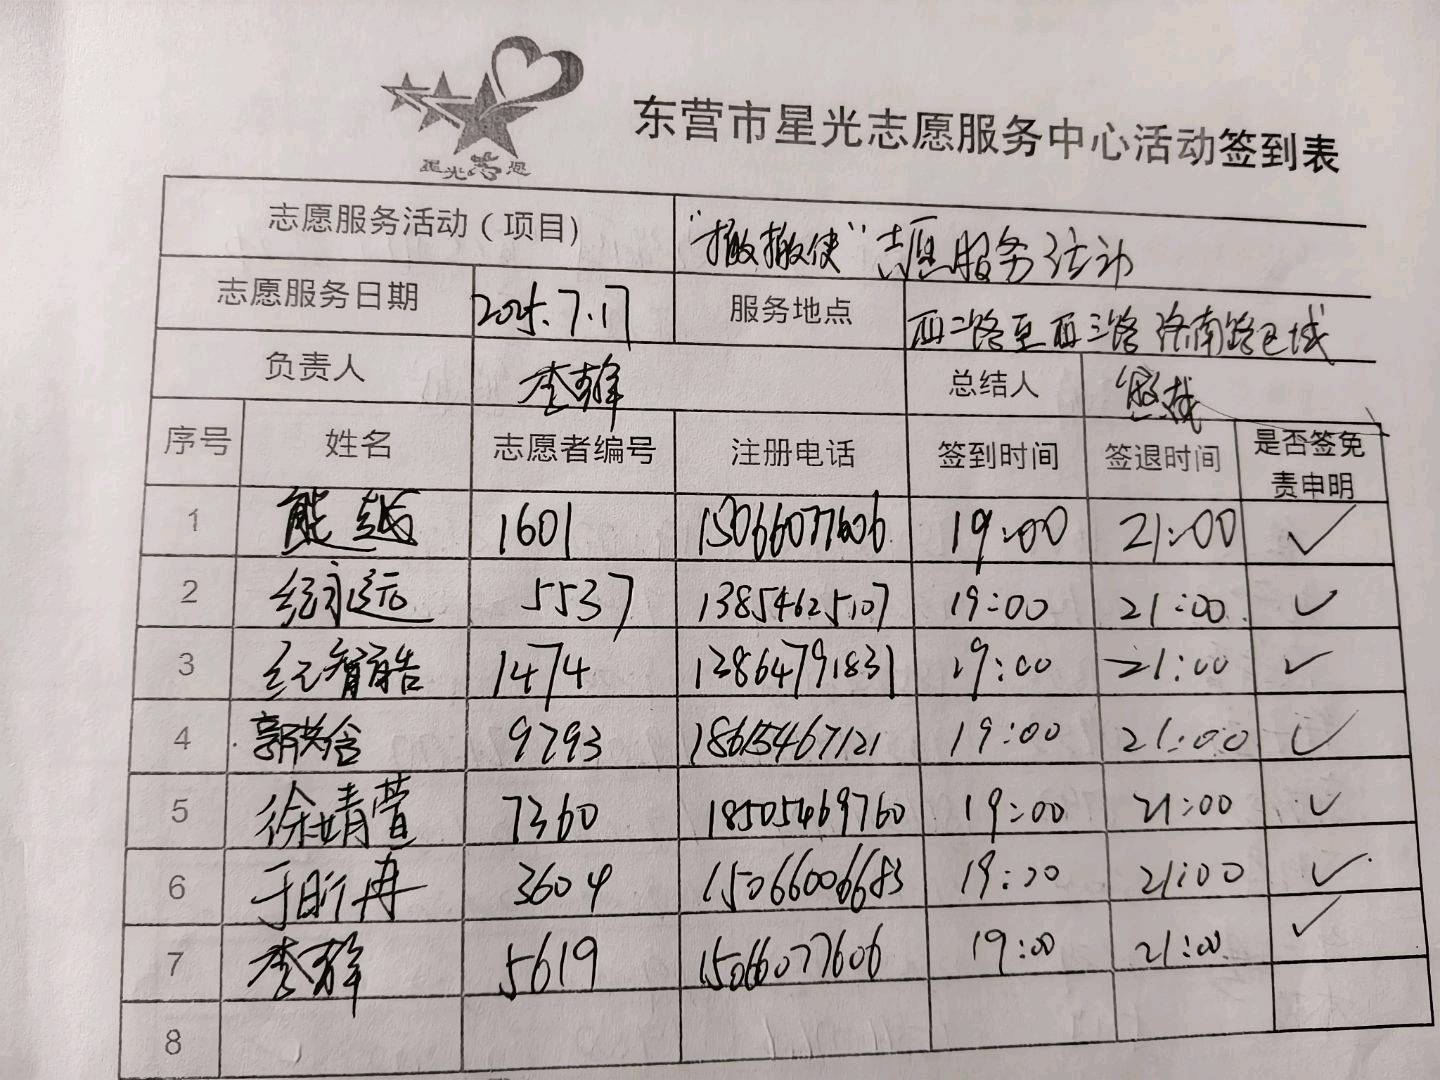 星光志愿
东营市星光志愿服务中心活动签到表
志愿服务活动（项目） "撤撤使"志愿服务活动
志愿服务日期 2025.7.17 服务地点 西二路至西三路 济南路区域
负责人 李 总结人 熊越
序号 姓名 志愿者编号 注册电话 签到时间 签退时间 是否签免
责申明
1 熊越 1601 15066077606 19:00 21:00 ✓
2 纪永远 5537 13854625107 19:00 21:00 ✓
3 纪智皓 1474 13864791831 19:00 21:00 ✓
4 郭 9793 18615467121 19:00 21:00 ✓
5 徐婧萱 7360 18505469760 19:00 21:00 ✓
6 于昕冉 3604 15066006683 19:00 21:00 ✓
7 李 5619 15066077606 19:00 21:00 ✓
8